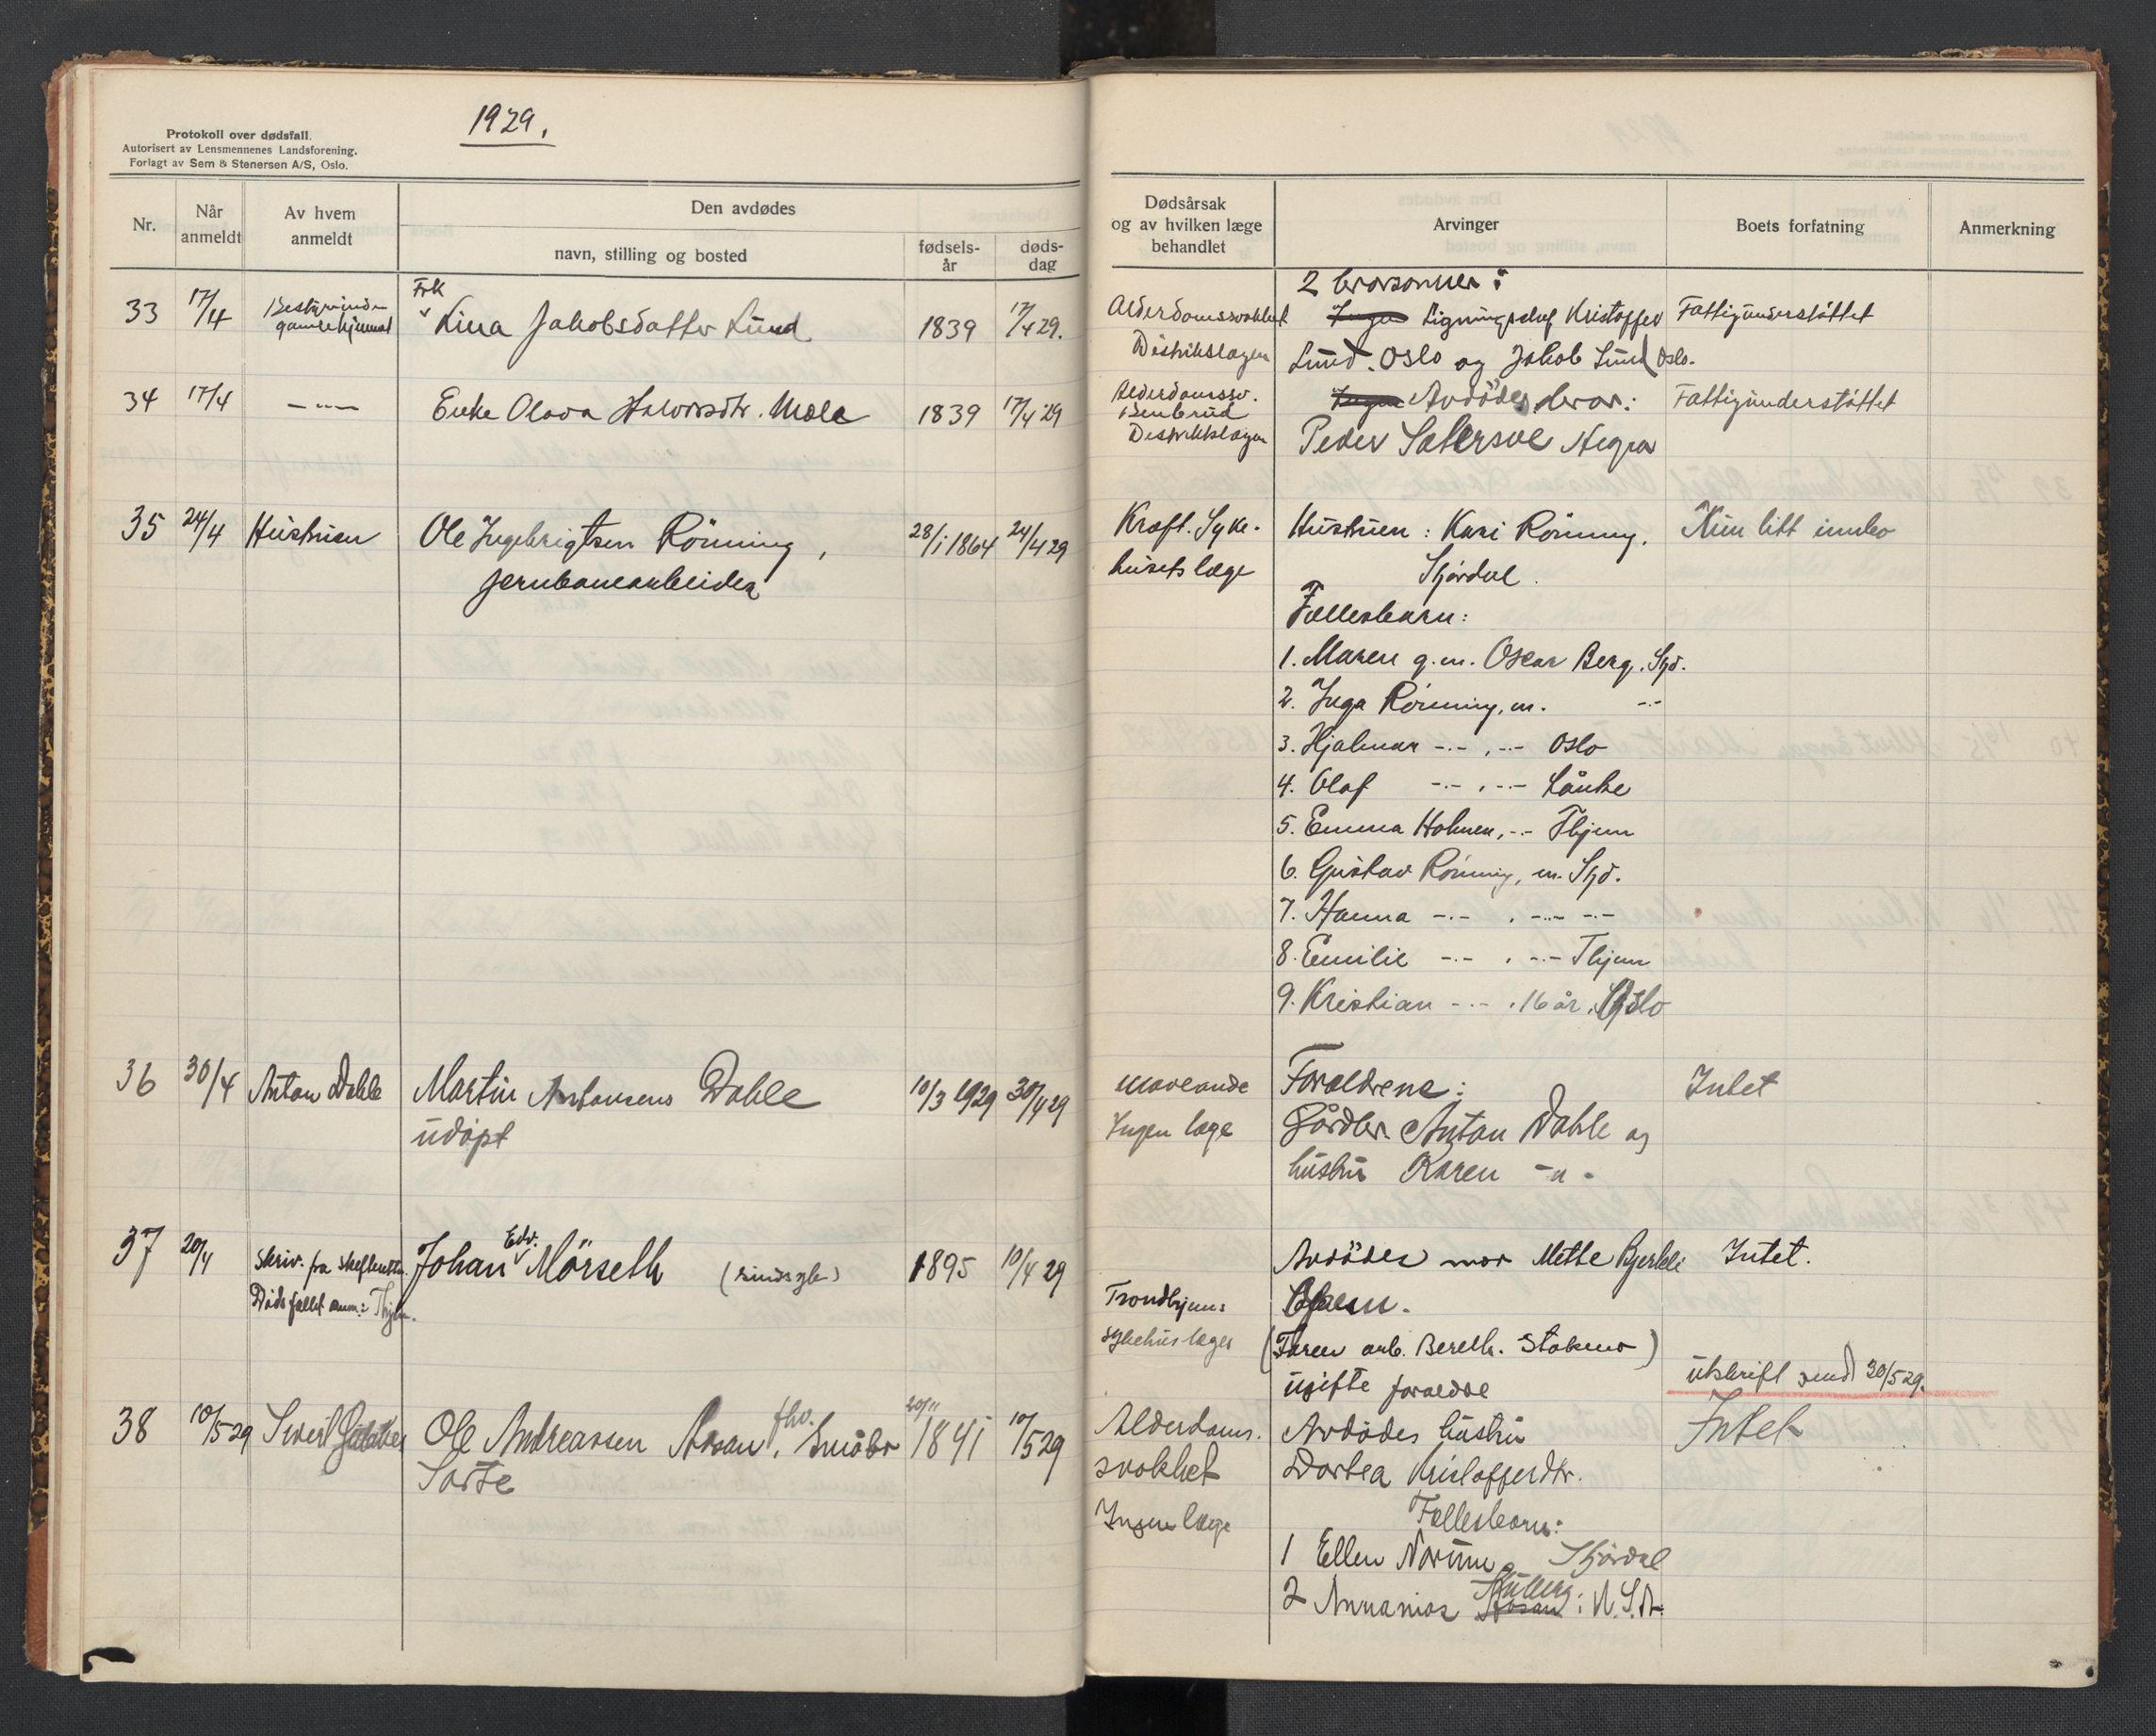 1929.
Protokoll over dødsfall.
Autorisert av Lensmennenes Landsforening.
Forlagt av Sem & Stenersen A/S, Oslo.
Nr.
Når anmeldt
Av hvem anmeldt
Den avdødes
navn, stilling og bosted
fødsels-år
døds-dag
Dødsårsak og av hvilken læge behandlet
Arvinger
Boets forfatning
Anmerkning
33 17/4 Bestyrerinden gamlehjemmet
Frk Lina Jakobsdatter Lund 1839 17/4 29.
Alderdomssvakhet
Distriktslægen
2 brorsønner:
Ingen Ligningschef Kristoffer
Lund. Oslo og Jakob Lund Oslo.
Fattigunderstøttet
34 17/4 -"-
Enke Olava Halvorsdtr. Mæle 1839 17/4 29
Alderdomssv.
Benbrud
Distriktslægen
Ingen Avdödes bror:
Peder Sætersve Hegra
Fattigunderstøttet
35 24/4 Hustruen
Ole Ingebrigtsen Rönning,
jernbanearbeider
28/1 1864 24/4 29
Kræft. Syke-
husets læge
Hustruen: Kari Rönning.
Stjørdal.
Fællesbarn:
1. Maren g.m. Oscar Berg, Stjd.
2. Inga Rönning, m. -"-
3. Hjalmar -"- , -"- Oslo
4. Olaf -"- , -"- Lånke
5. Emma Holmen, -"- Thjem
6. Gustav Rönning, m. Stjd.
7. Hanna -"- , -"- -"-
8. Emilie -"- , -"- Thjem
9. Kristian -"- , 16 år, Oslo
Kun litt innbo
36 30/4 Anton Dahle
Martin Antonsens Dahle
udøpt
10/3 1929 30/4 29
Ingen læge
Forældrene:
Gårdbr. Anton Dahle og
hustru Karen -"-
Intet
37 20/4 Skriv. fra skifteretten.
Dødsfallet anm: Thjem.
Johan Edv. Mörseth (sindssyk) 1895 10/4 29
Trondhjems
sykehus læger
Avdödes mor Mette Bjerkli
(Faren arb. Bereth. Stokmo)
ugifte forældre
Intet.
utskrift sendt 30/5 29.
38 10/5 29 Sivert
Ole Andreassen Aasan, fhv. Småbr
Sorte
20/11 1841 10/5 29
Alderdoms-
svakhet
Ingen læge
Avdödes hustru
Dortea Kristofferdtr.
Fællesbarn:
1 Ellen Stjørdal
2 Annanias Aasan : N.S.A.
Intet